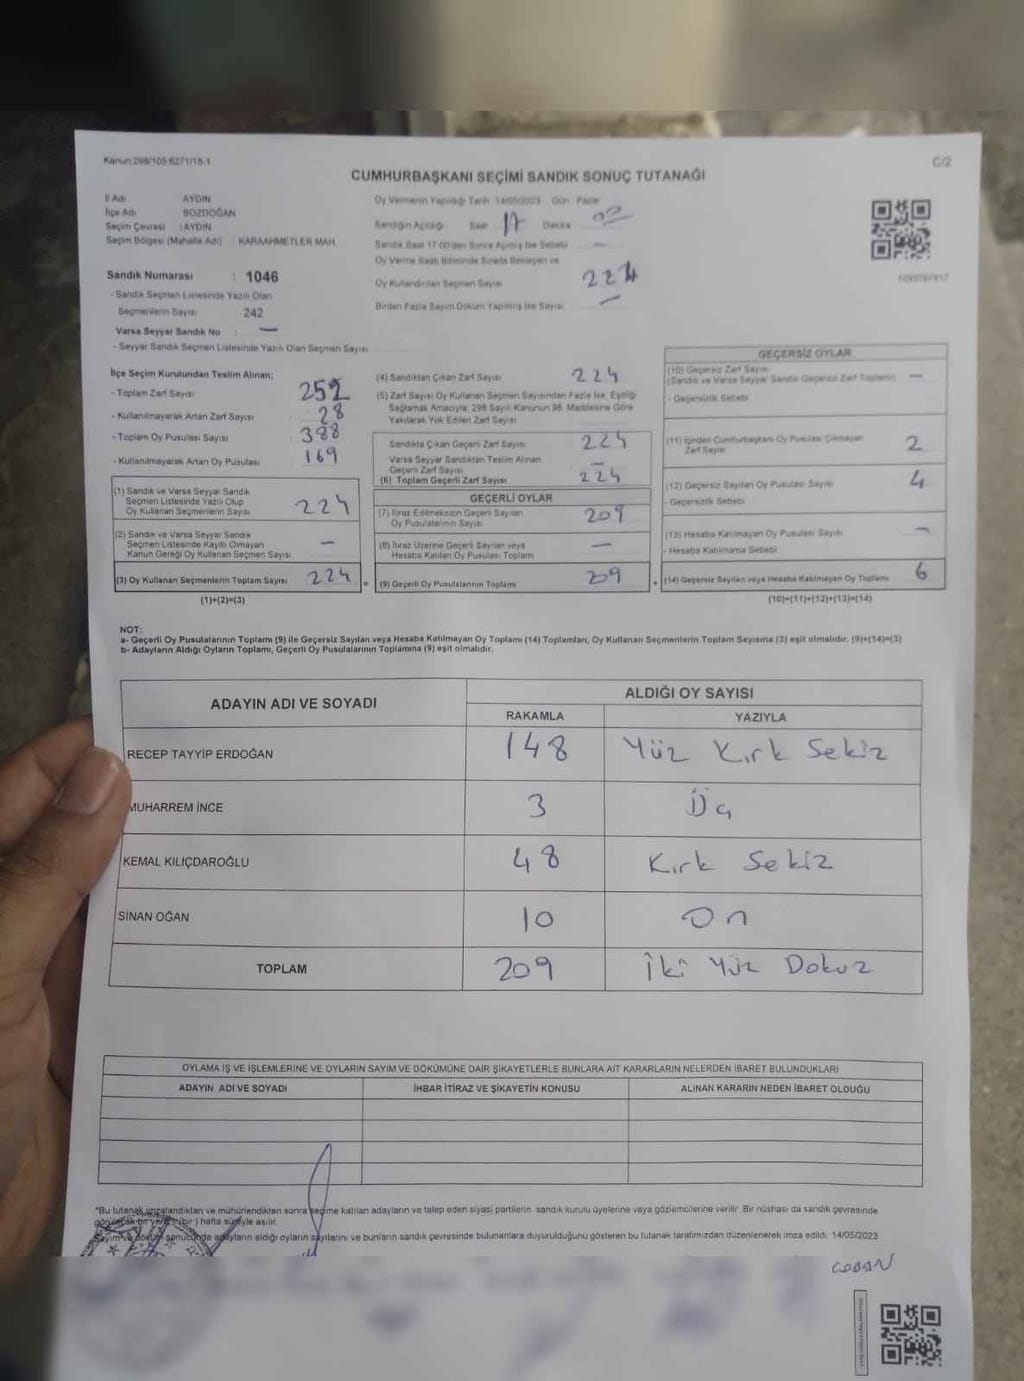 Kanun:298/105-6271/18-1
C/2
CUMHURBAŞKANI SEÇİMİ SANDIK SONUÇ TUTANAĞI
İl Adı AYDIN
İlçe Adı BOZDOĞAN
Seçim Çevresi :AYDIN
Seçim Bölgesi (Mahalle Adı) KARAAHMETLER MAH.
Oy Vermenin Yapıldığı Tarih 14/05/2023 Gün Pazar
Sandığın Açıldığı Saat 17 Dakika 00
Sandık Saat 17.00'den Sonra Açılmış İse Sebebi —
Oy Verme Saati Bitiminde Sırada Bekleyen ve
Oy Kullandırılan Seçmen Sayısı 224
Birden Fazla Sayım Döküm Yapılmış İse Sayısı —
Sandık Numarası : 1046
- Sandık Seçmen Listesinde Yazılı Olan
Seçmenlerin Sayısı 242
Varsa Seyyar Sandık No : —
- Seyyar Sandık Seçmen Listesinde Yazılı Olan Seçmen Sayısı
İlçe Seçim Kurulundan Teslim Alınan;
- Toplam Zarf Sayısı 252
- Kullanılmayarak Artan Zarf Sayısı 28
- Toplam Oy Pusulası Sayısı 388
- Kullanılmayarak Artan Oy Pusulası 169
(1) Sandık ve Varsa Seyyar Sandık
Seçmen Listesinde Yazılı Olup
Oy Kullanan Seçmenlerin Sayısı 224
(2) Sandık ve Varsa Seyyar Sandık
Seçmen Listesinde Kayıtlı Olmayan
Kanun Gereği Oy Kullanan Seçmen Sayısı —
(3) Oy Kullanan Seçmenlerin Toplam Sayısı 224 =
(1)+(2)=(3)
(4) Sandıktan Çıkan Zarf Sayısı 224
(5) Zarf Sayısı Oy Kullanan Seçmen Sayısından Fazla İse, Eşitliği
Sağlamak Amacıyla; 298 Sayılı Kanunun 98. Maddesine Göre
Yakılarak Yok Edilen Zarf Sayısı
Sandıkta Çıkan Geçerli Zarf Sayısı 224
Varsa Seyyar Sandıktan Teslim Alınan
Geçerli Zarf Sayısı —
(6) Toplam Geçerli Zarf Sayısı 224
GEÇERLİ OYLAR
(7) İtiraz Edilmeksizin Geçerli Sayılan
Oy Pusulalarının Sayısı 209
(8) İtiraz Üzerine Geçerli Sayılan veya
Hesaba Katılan Oy Pusulası Toplamı —
(9) Geçerli Oy Pusulalarının Toplamı 209 +
GEÇERSİZ OYLAR
(10) Geçersiz Zarf Sayısı
(Sandık ve Varsa Seyyar Sandık Geçersiz Zarf Toplamı) —
- Geçersizlik Sebebi
(11) İçinden Cumhurbaşkanı Oy Pusulası Çıkmayan
Zarf Sayısı 2
(12) Geçersiz Sayılan Oy Pusulası Sayısı 4
- Geçersizlik Sebebi
(13) Hesaba Katılmayan Oy Pusulası Sayısı —
- Hesaba Katılmama Sebebi
(14) Geçersiz Sayılan veya Hesaba Katılmayan Oy Toplamı 6
(10)+(11)+(12)+(13)=(14)
NOT:
a- Geçerli Oy Pusulalarının Toplamı (9) ile Geçersiz Sayılan veya Hesaba Katılmayan Oy Toplamı (14) Toplamları, Oy Kullanan Seçmenlerin Toplam Sayısına (3) eşit olmalıdır. (9)+(14)=(3)
b- Adayların Aldığı Oyların Toplamı, Geçerli Oy Pusulalarının Toplamına (9) eşit olmalıdır.
ADAYIN ADI VE SOYADI ALDIĞI OY SAYISI
RAKAMLA YAZIYLA
RECEP TAYYİP ERDOĞAN 148 Yüz Kırk Sekiz
MUHARREM İNCE 3 Üç
KEMAL KILIÇDAROĞLU 48 Kırk Sekiz
SİNAN OĞAN 10 On
TOPLAM 209 İki Yüz Dokuz
OYLAMA İŞ VE İŞLEMLERİNE VE OYLARIN SAYIM VE DÖKÜMÜNE DAİR ŞİKAYETLERLE BUNLARA AİT KARARLARIN NELERDEN İBARET BULUNDUKLARI
ADAYIN ADI VE SOYADI İHBAR İTİRAZ VE ŞİKAYETİN KONUSU ALINAN KARARIN NEDEN İBARET OLDUĞU
*Bu tutanak imzalandıktan ve mühürlendikten sonra seçime katılan adayların ve talep eden siyasi partilerin sandık kurulu üyelerine veya gözlemcilerine verilir. Bir nüshası da sandık çevresinde
görülecek bir yere bir hafta süreyle asılır.
Sayım ve döküm sonucunda adayların aldığı oyların sayılarını ve bunların sandık çevresinde bulunanlara duyurulduğunu gösteren bu tutanak tarafımızdan düzenlenerek imza edildi. 14/05/2023